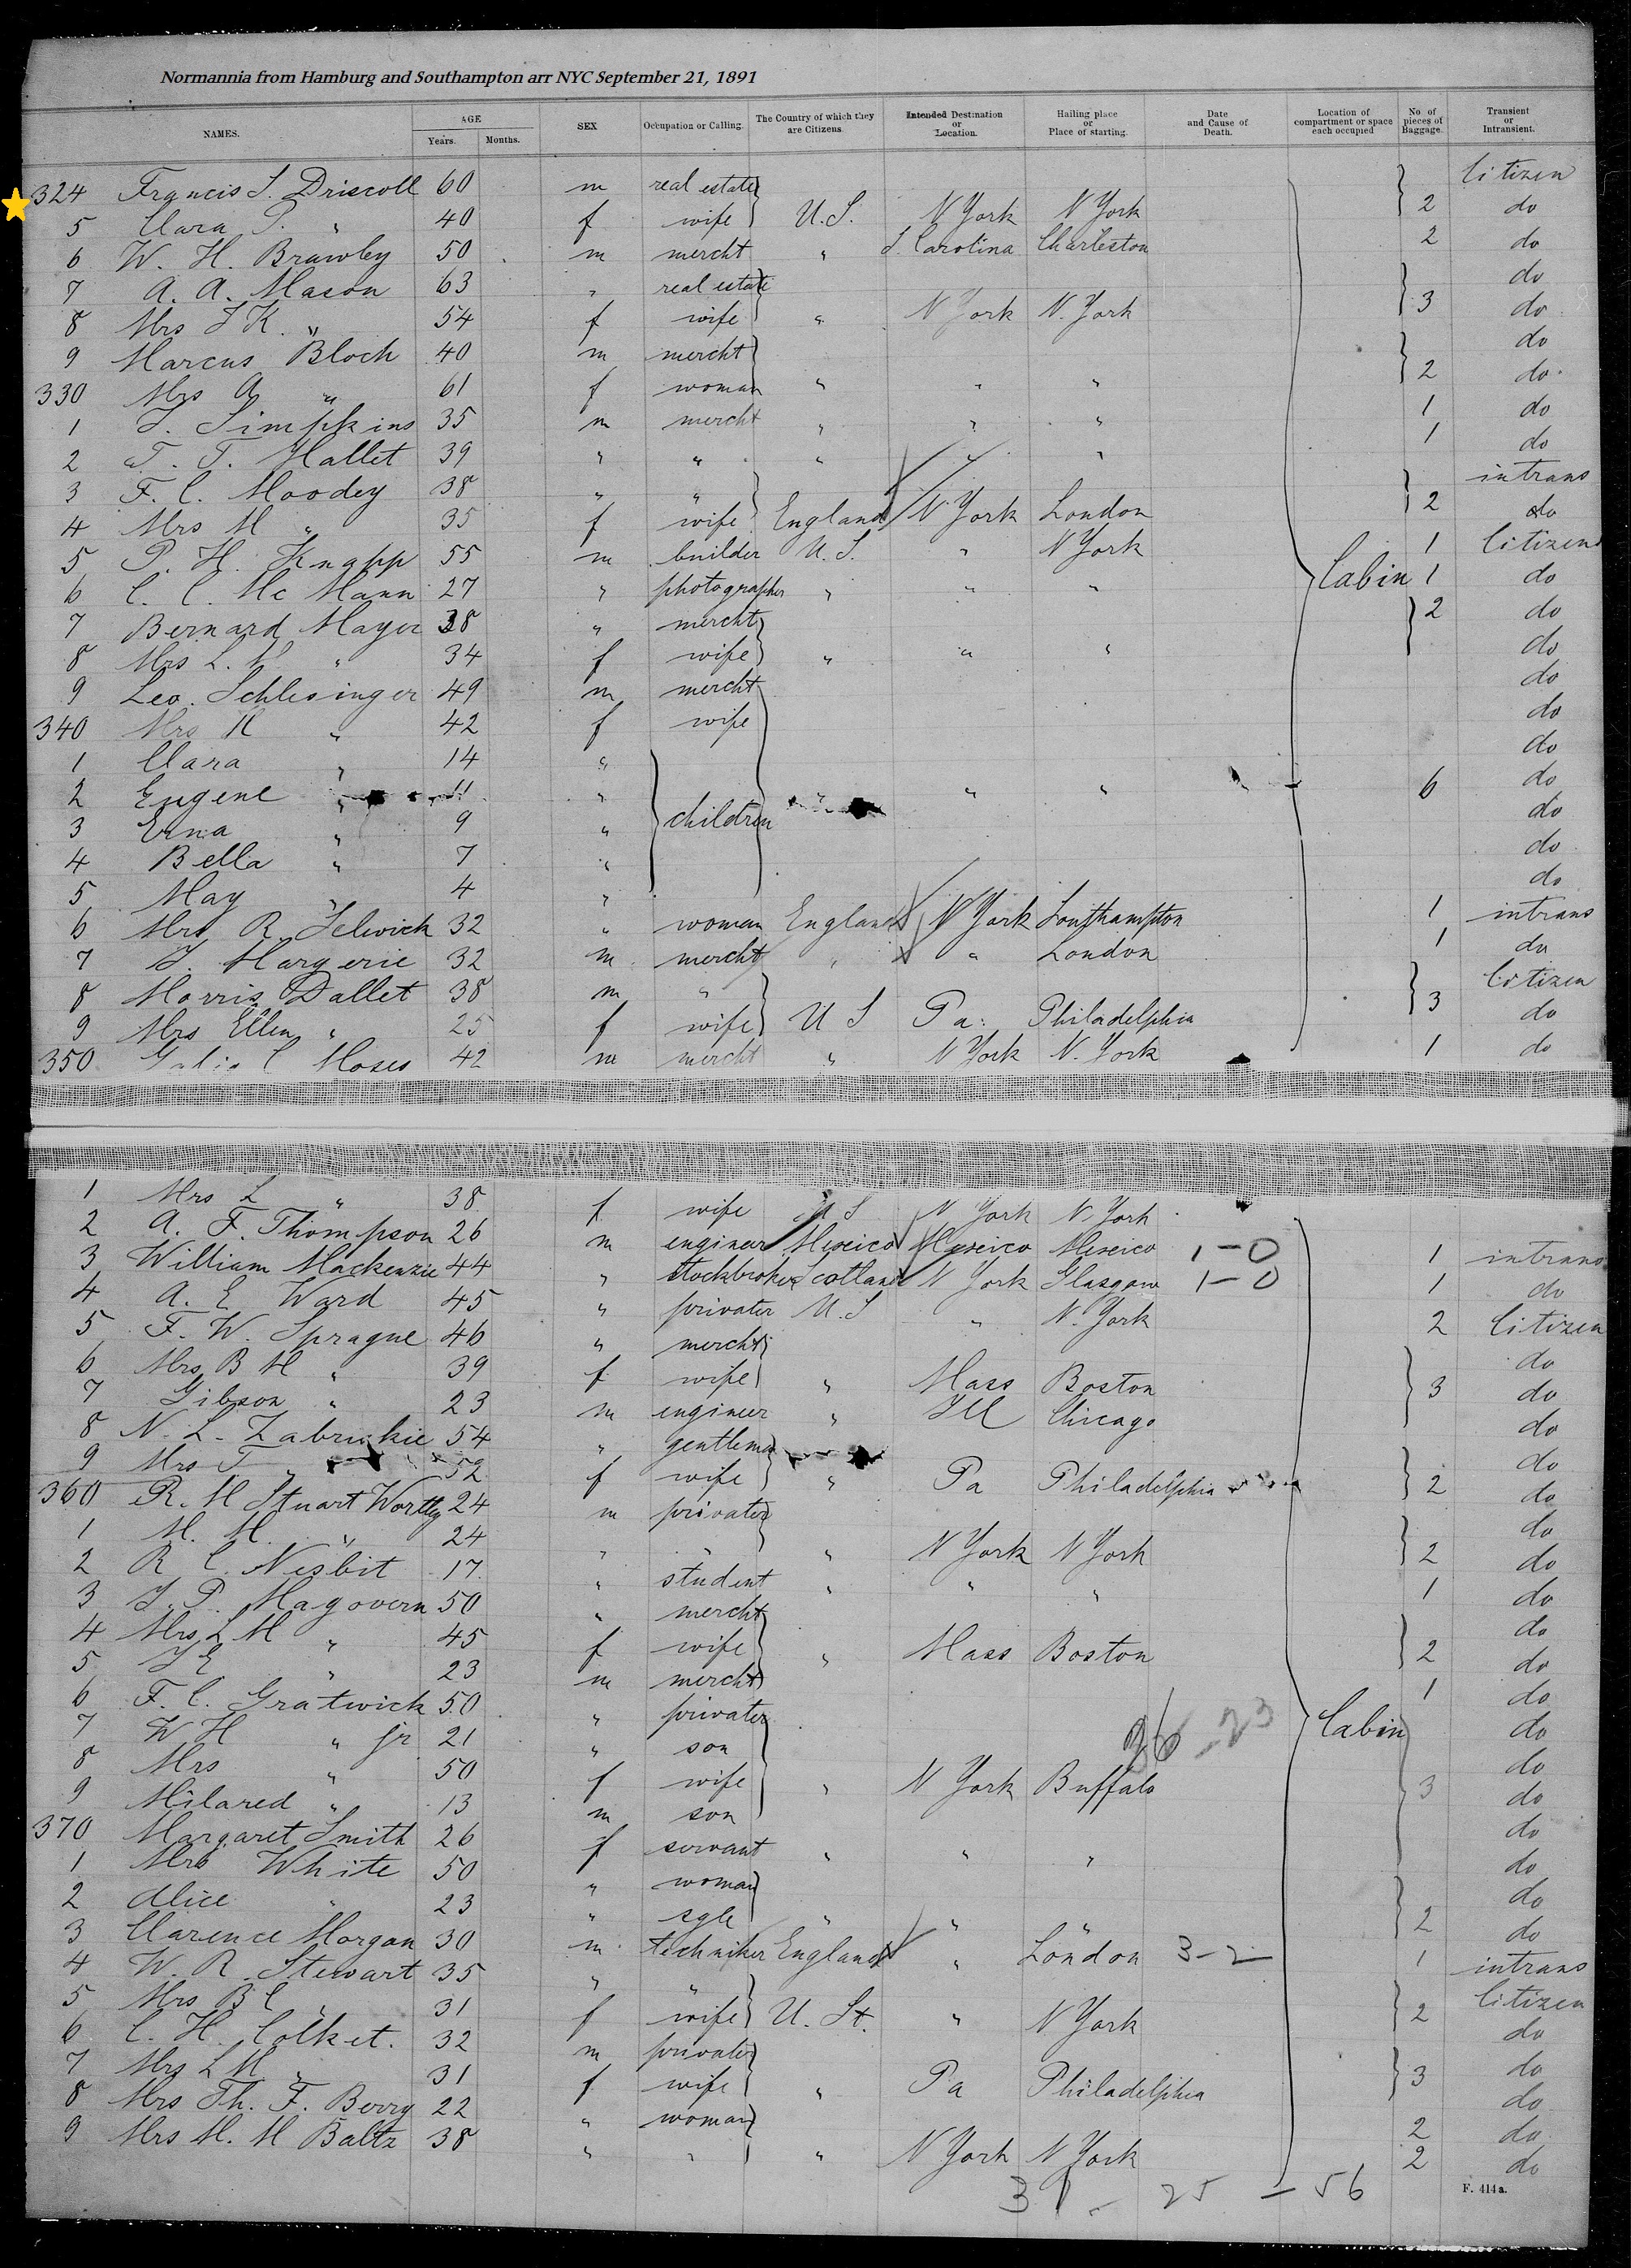 Normannia from Hamburg and Southampton arr NYC September 21, 1891
NAMES. AGE Years. Months. SEX Occupation or Calling. The Country of which they are Citizens. Intended Destination or Location. Hailing place or Place of starting. Date and Cause of Death. Location of compartment or space each occupied No. of pieces of Baggage. Transient or Intransient.
324 Francis S. Driscoll 60 m real estate Citizen
5 Clara P. " 40 f wife U.S. N York N York 2 do
6 W. H. Brawley 50 m mercht " S. Carolina Charleston 2 do
7 A. A. Mason 63 " real estate do
8 Mrs S K. " 54 f wife " N York N. York 3 do
9 Marcus Bloch 40 m mercht do
330 Mrs A " 61 f woman " " " 2 do
1 S. Simpkins 35 m mercht " " " 1 do
2 T. T. Hallet 39 " " " " " 1 do
3 F. C. Moodey 38 " " intrans
4 Mrs M " 35 f wife England N York London 2 do
5 P. H. Knapp 55 m builder U. S. " N York 1 Citizen
6 C. C. Mc Mann 27 " photographer " " " Cabin 1 do
7 Bernard Mayer 38 " mercht 2 do
8 Mrs L. W. " 34 f wife " " " do
9 Leo. Schlesinger 49 m mercht do
340 Mrs H " 42 f wife do
1 Clara " 14 " do
2 Eugene " 11 " " " " 6 do
3 Erna " 9 " children do
4 Bella " 7 " do
5 May " 4 " do
6 Mrs R. Selwick 32 " woman England N York Southampton 1 intrans
7 J. Margerie 32 m mercht " " London 1 do
8 Morris Dallet 38 m " Citizen
9 Mrs Ellen " 25 f wife U S Pa. Philadelphia 3 do
350 C Moses 42 m mercht " N York N. York 1 do
1 Mrs L " 38 f wife U S N York N. York
2 A. F. Thompson 26 m engineer Mexico Mexico Mexico 1-0 1 intrans
3 William Mackenzie 44 " Stockbroker Scotland N York Glasgow 1-0 1 do
4 A. E Ward 45 " privater U. S " N. York 2 Citizen
5 F. W. Sprague 46 " mercht do
6 Mrs B M " 39 f wife " Mass Boston 3 do
7 Gibson " 23 m engineer " Ill Chicago do
8 N. L. Zabriskie 54 " gentleman do
9 Mrs T " 52 f wife " Pa Philadelphia 2 do
360 R. M Stuart Wortley 24 m privater do
1 M. M. " 24 " " " N York N York 2 do
2 R C. Nesbit 17 " student " " " 1 do
3 J. P. Magovern 50 " mercht do
4 Mrs L M " 45 f wife " Mass Boston 2 do
5 J E " 23 m mercht 1 do
6 F. C. Gratwick 50 " privater Cabin do
7 W H " jr 21 " son 26 - 23 do
8 Mrs " 50 f wife " N York Buffalo 3 do
9 Milared " 13 m son do
370 Margaret Smith 26 f servant " " " do
1 Mrs White 50 " woman do
2 Alice " 23 " sgle " " " 2 do
3 Clarence Morgan 30 m techniker England " London 3-2 1 intrans
4 W. R. Stewart 35 " " Citizen
5 Mrs B C " 31 f wife U. St. " N York 2 do
6 C. H. Colket. 32 m privater do
7 Mrs L M " 31 f wife " Pa Philadelphia 3 do
8 Mrs Th. F. Berry 22 " woman 2 do
9 Mrs M. M Baltz 38 " " " N York N York 2 do
31 - 25 - 56
F. 414a.